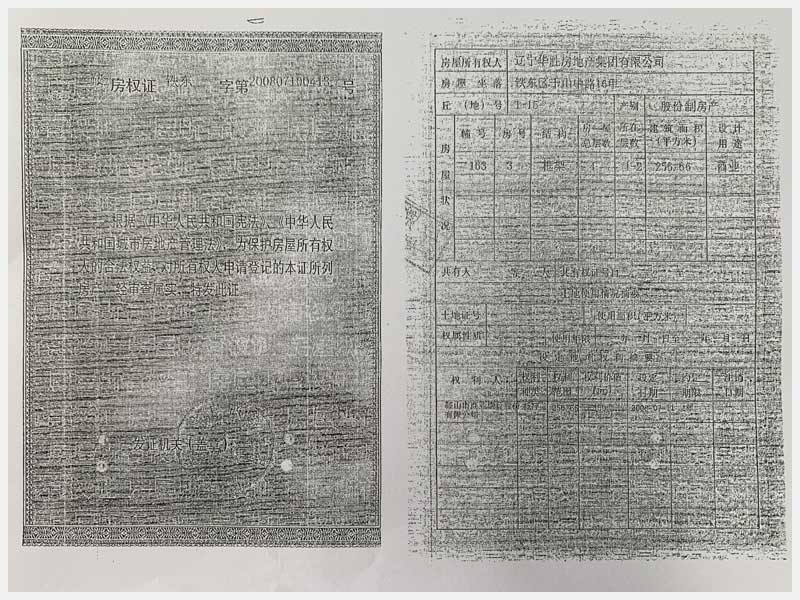 房权证 铁东 字第200807160413 号
根据《中华人民共和国宪法》、《中华人民
共和国城市房地产管理法》，为保护房屋所有权
人的合法权益，对所有权人申请登记的本证所列
房 经审查属实，特发此证。
发证机关（盖章）
房屋所有权人 辽宁华 房地产集团有限公司
房屋坐落 铁东区千山中路16甲
丘（地）号 1-15 产别 股份制房产
房屋状况
幢号 房号 结构 房屋总层数 所在层数 建筑面积（平方米） 设计用途
163 3 框架 1-2 256.66 商业
共有人 等 人 共有权证号自
土地使用情况摘要
土地证号 使用面积（平方米）
权属性质 使用年限 年 月 日至 年 月 日
设定他项权利摘要
权利人 权利种类 权利范围 权利价值（元） 设定日期 约定期限 注销日期
鞍山市
有限公司